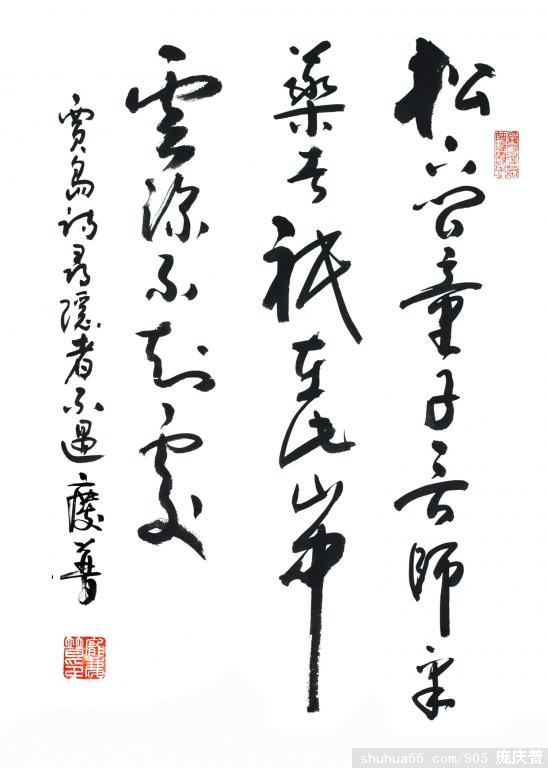 松下問童子言師采
藥去祇在此山中
雲深不知處
賈島詩尋隱者不遇 慶普
shuhua66.com/905 庞庆普